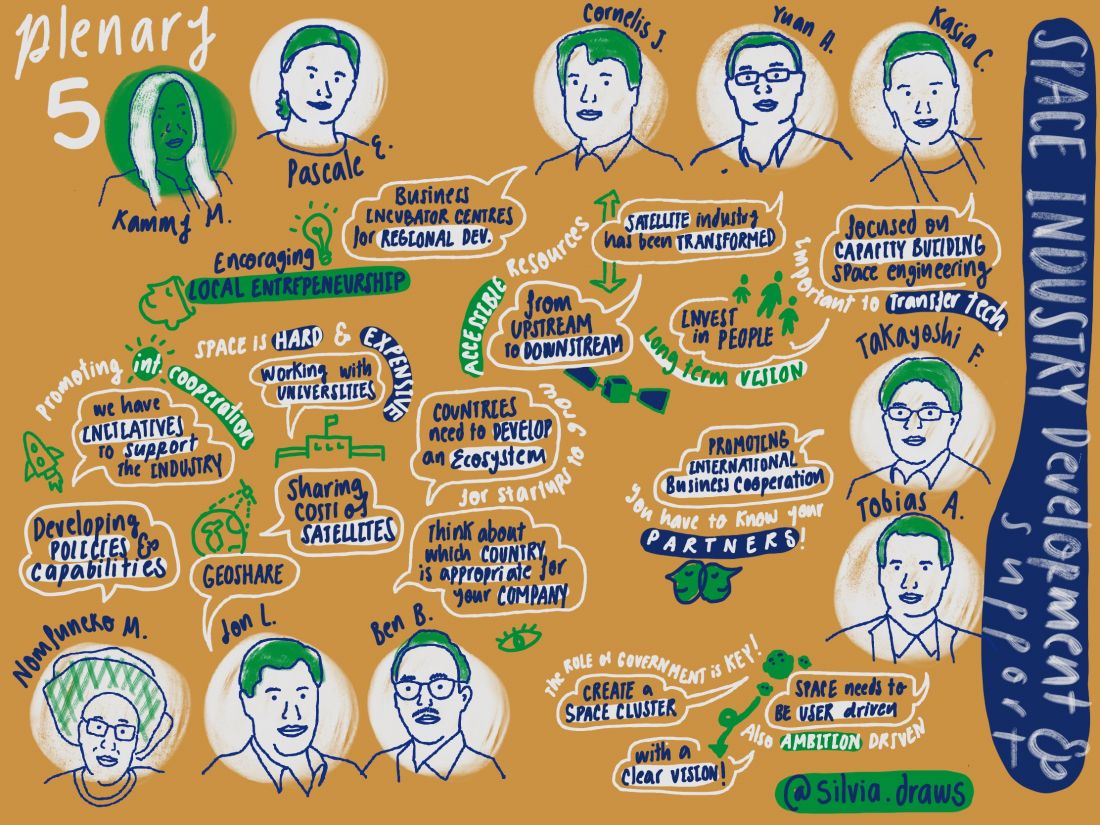 Plenary
5
Kammy M.
Pascale E.
Cornelis J.
Yuan A.
Kasia C.
SPACE INDUSTRY Development &
Support
Business
INCUBATOR CENTRES
for REGIONAL DEV.
Encoraging
LOCAL ENTREPENEURSHIP
ACCESSIBLE Resources
SATELLITE industry
has been TRANSFORMED
from
UPSTREAM
to DOWNSTREAM
INVEST
in PEOPLE
Long term VISION
focused on
CAPACITY BUILDING
space engineering
important to Transfer tech.
Takayoshi F.
Promoting int. cooperation
we have
INITIATIVES
to support
the INDUSTRY
Developing
POLICIES &
capabilities
Nompuncko M.
SPACE IS HARD & EXPENSIVE
working with
UNIVERSITIES
Sharing
COSTS of
SATELLITES
GEOSHARE
Jon L.
COUNTRIES
need to DEVELOP
an Ecosystem
for startups to grow
Think about
which COUNTRY
is appropriate for
your COMPANY
Ben B.
PROMOTING
INTERNATIONAL
Business Cooperation
you have to know your
PARTNERS!
Tobias A.
The ROLE of GOVERNMENT is KEY!
CREATE a
SPACE CLUSTER
with a
clear VISION!
SPACE needs to
BE USER driven
Also AMBITION DRIVEN
@silvia.draws